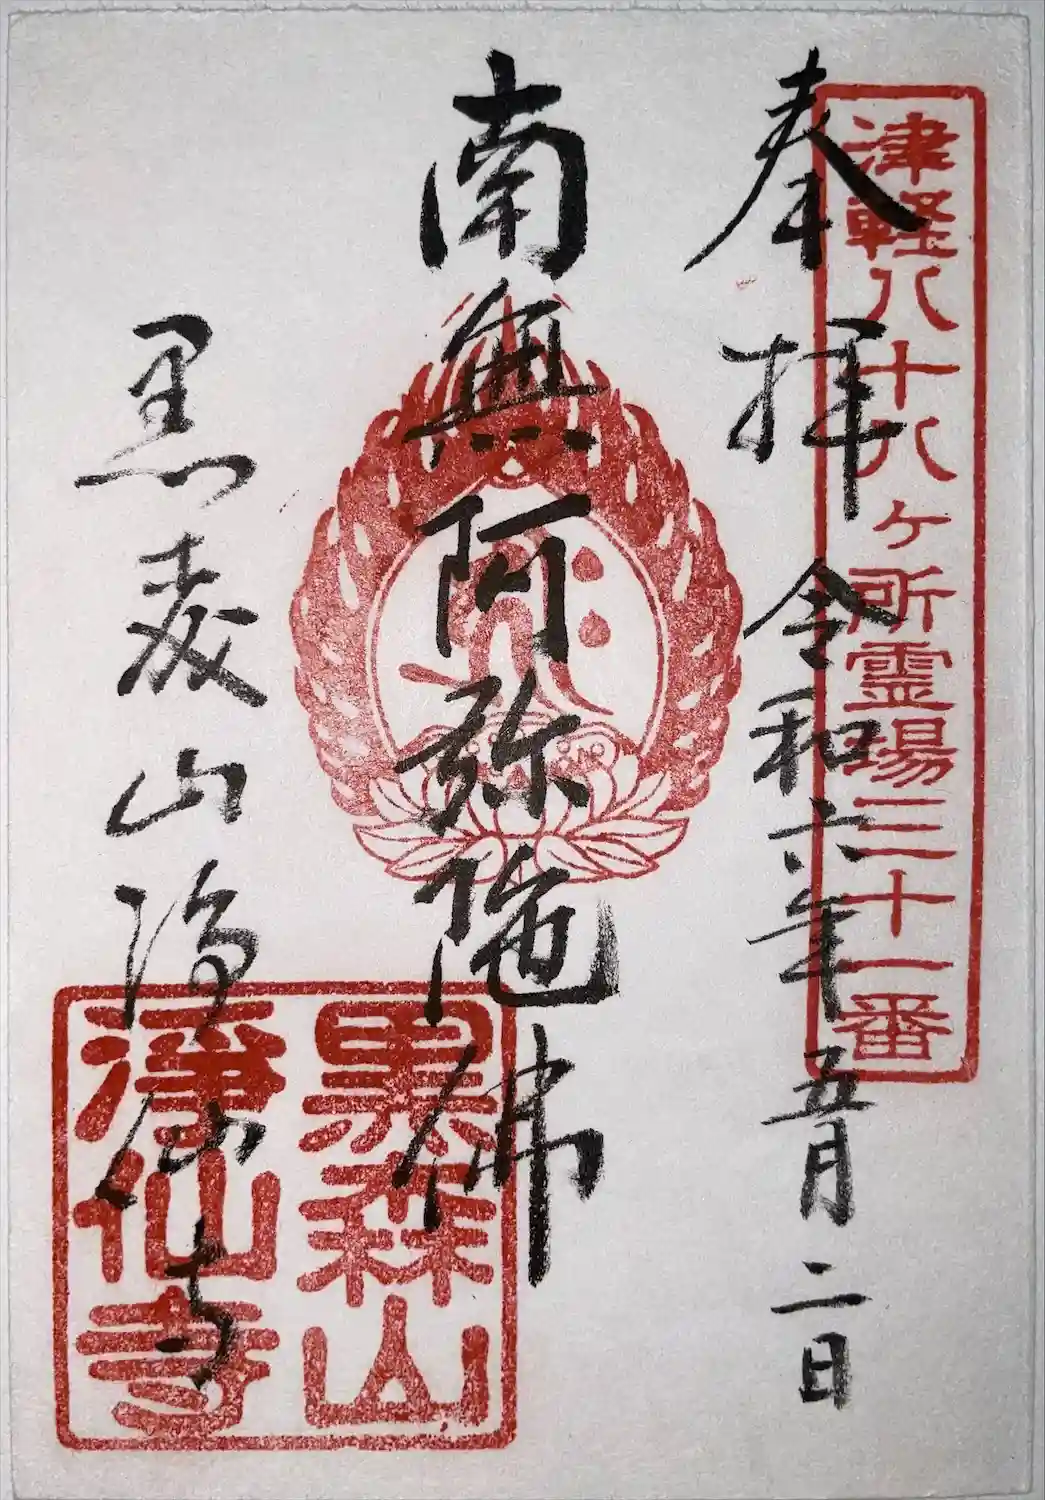 津軽八十八ヶ所霊場三十一番
奉拝 令和六年五月二日
南無阿弥陀佛
黒森山浄仙寺
黒森山
浄仙寺